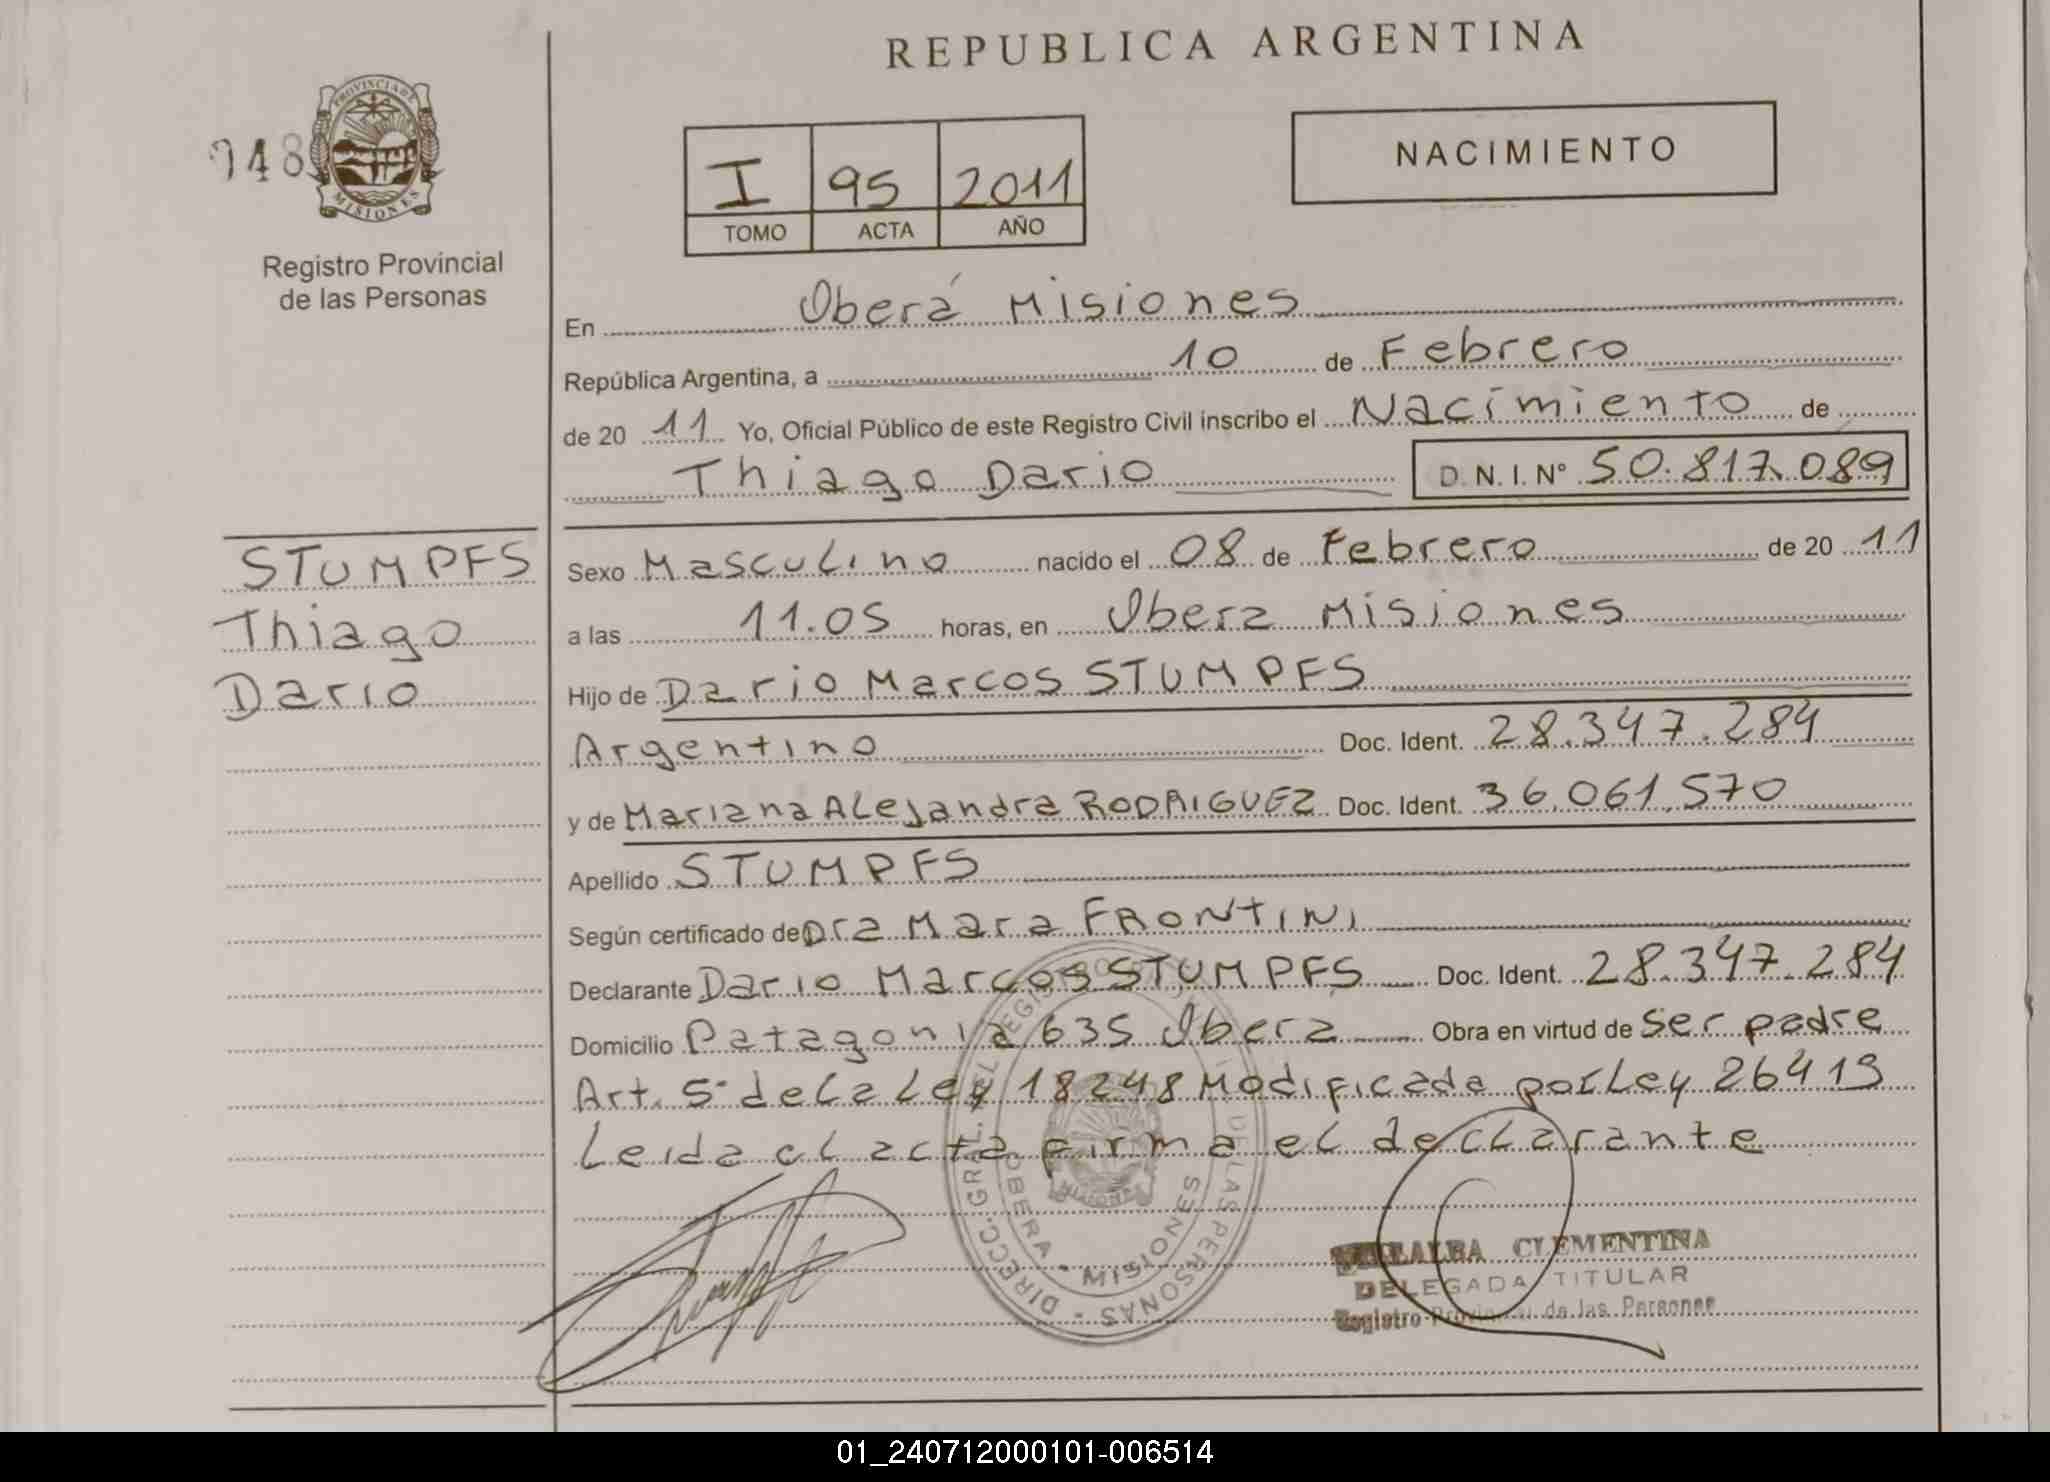 REPUBLICA ARGENTINA
PROVINCIA DE
MISIONES
948
Registro Provincial
de las Personas
I 95 2011
TOMO ACTA AÑO
NACIMIENTO
En Oberá Misiones
República Argentina, a 10 de Febrero
de 2011 Yo, Oficial Público de este Registro Civil inscribo el Nacimiento de
Thiago Dario D.N.I. Nº 50.817.089
STUMPFS
Thiago
Dario
Sexo Masculino nacido el 08 de Febrero de 2011
a las 11.05 horas, en Obera Misiones
Hijo de Dario Marcos STUMPFS
Argentino Doc. Ident. 28.347.284
y de Mariana ALejandra RODRIGUEZ Doc. Ident. 36.061.570
Apellido STUMPFS
Según certificado de Dra Mara FRONTINI
Declarante Dario Marcos STUMPFS Doc. Ident. 28.347.284
Domicilio Patagonia 635 Obera Obra en virtud de ser padre
Art. 5º de La Ley 18248 Modificada por Ley 26413
Leida el acta firma el decLarante
DIRECC. GRAL. DEL REGISTRO DE LAS PERSONAS
OBERA - MISIONES
CLEMENTINA
DELEGADA TITULAR
Registro Provincial de las Personas
01_240712000101-006514